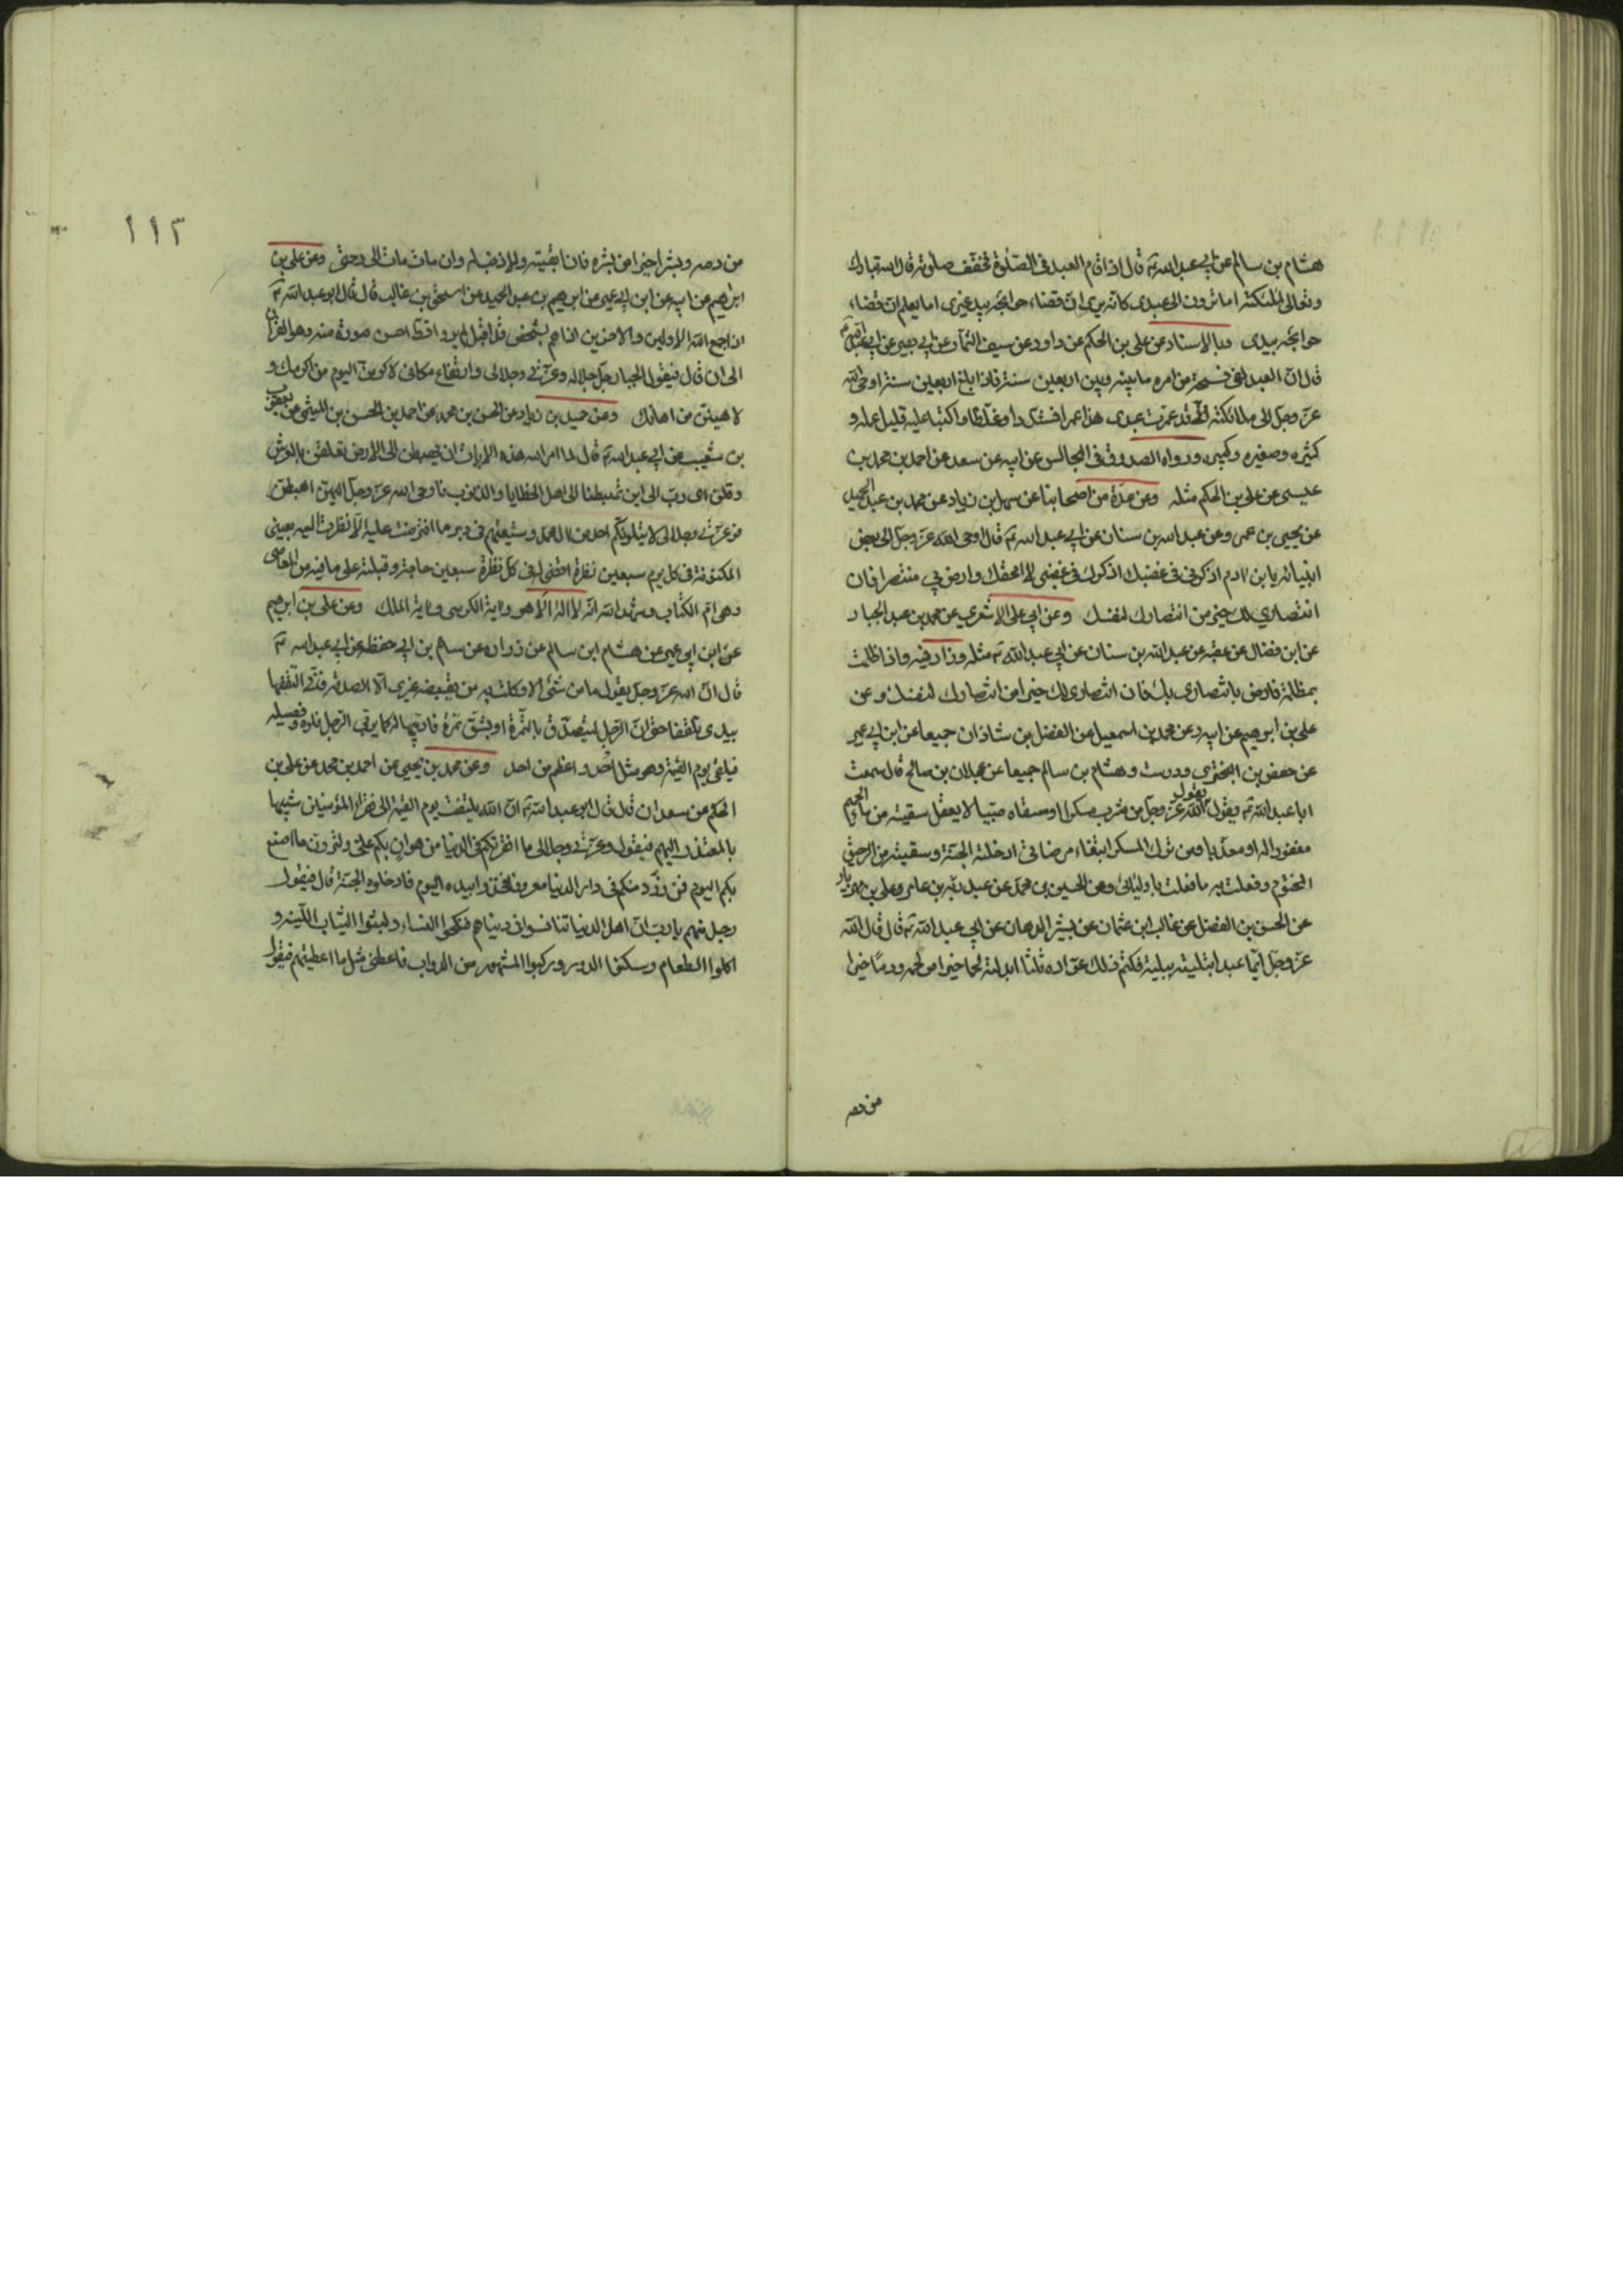 هشام بن سالم عن ابي عبد الله ع قال اذا قام العبد في الصلوة فخفف صلوته قال الله تبارك
وتعالى لملئكته اما ترون الى عبدي كانه يرى ان قضاء حوائجه بيد غيري اما يعلم ان قضاء
حوائجه بيدي وبالاسناد عن علي بن الحكم عن داود عن سيف التمار عن ابي بصير عن ابي عبد الله ع
قال ان العبد لفي فسحة من امره ما بينه وبين اربعين سنة فاذا بلغ اربعين سنة اوحى الله
عز وجل الى ملائكته قد عمرت عبدي هذا عمرا فشددا وغلظا واكتبا عليه قليل عمله و
كثيره وصغيره وكبيره ورواه الصدوق في المجالس عن ابيه عن سعد عن احمد بن محمد بن
عيسى عن علي بن الحكم مثله وعن عدة من اصحابنا عن سهل بن زياد عن محمد بن عبد الحميد
عن يحيى بن عمرو عن عبد الله بن سنان عن ابي عبد الله ع قال اوحى الله عز وجل الى بعض
انبيائه يا بن ادم اذكرني في غضبك اذكرك في غضبي لا امحقك وارض بي منتصرا فان
انتصاري لك خير من انتصارك لنفسك وعن ابي علي الاشعري عن محمد بن عبد الجبار
عن ابن فضال عن عقبه عن عبد الله بن سنان عن ابي عبد الله ع مثله وزاد فيه واذا ظلمت
بمظلمة فارض بانتصاري لك فان انتصاري لك خير من انتصارك لنفسك وعن
علي بن ابرهيم عن ابيه وعن محمد بن اسمعيل عن الفضل بن شاذان جميعا عن ابن ابي عمير
عن حفص بن البختري ودرست وهشام بن سالم جميعا عن عجلان بن صالح قال سمعت
ابا عبد الله ع يقول يقول الله عز وجل من شرب مسكرا او سقاه صبيا لا يعقل سقيته من ماء الحميم
مغفورا له او معذبا ومن ترك المسكر ابتغاء مرضاتي ادخلته الجنة وسقيته من الرحيق
المختوم وفعلت به ما فعلت باوليائي وعن الحسين بن محمد عن عبد ربه بن عامر وعلي بن مهزيار
عن الحسن بن الفضل عن غالب ابن عثمان عن بشير الدهان عن ابي عبد الله ع قال قال الله
عز وجل ايما عبد ابتليته ببلية فكتم ذلك عواده ثلثا ابدلته لحما خيرا من لحمه ودما خيرا
من دمه
١١٢
من دمه وبشرا خيرا من بشره فان ابقيته ولا ذنب له وان مات مات الى رحمتي وعن علي بن
ابراهيم عن ابيه عن ابن ابي عمير عن ابرهيم بن عبد الحميد عن اسحق بن غالب قال قال ابو عبد الله ع
اذا جمع الله الاولين والاخرين اذا هم بشخص قد اقبل لم ير قط احسن صورة منه وهو القرآن
الى ان قال فيقول الجبار جل جلاله وعزتي وجلالي وارتفاع مكاني لاكرمن اليوم من اكرمك و
لاهينن من اهانك وعن حميد بن زياد عن الحسن بن محمد عن احمد بن الحسن بن الميثمي عن يعقوب
بن شعيب عن ابي عبد الله ع قال لما امر الله هذه الايات ان يهبطن الى الارض تعلقن بالعرش
وقلن اي رب الى اين تهبطنا الى اهل الخطايا والذنوب فاوحى الله عز وجل اليهن اهبطن
فوعزتي وجلالي لا يتلوكن احد من ال محمد وشيعتهم في دبر ما افترضت عليه الا نظرت اليه بعيني
المكنونة في كل يوم سبعين نظرة اقضي له في كل نظرة سبعين حاجة وقبلته على ما فيه من المعاصي
وهي ام الكتاب وشهد الله انه لا اله الا هو واية الكرسي واية الملك وعن علي بن ابرهيم
عن ابن ابي عمير عن هشام ابن سالم عن زراره عن سالم بن ابي حفصه عن ابي عبد الله ع
قال ان الله عز وجل يقول ما من شئ الا وكلت به من يقبضه غيري الا الصدقة فاني اتلقفها
بيدي تلقفا حتى ان الرجل ليتصدق بالتمرة او بشق تمرة فاربيها له كما يربي الرجل فلوه وفصيله
فيلقى يوم القيمة وهو مثل احد واعظم من احد وعن محمد بن يحيى عن احمد بن محمد عن علي بن
الحكم عن سعدان قال قال ابو عبد الله ع ان الله يلتفت يوم القيمة الى فقراء المؤمنين شبيها
بالمعتذر اليهم فيقول وعزتي وجلالي ما افقرتكم في الدنيا من هوان بكم علي ولترون ما اصنع
بكم اليوم فمن زود منكم في دار الدنيا معروفا فخذوا بيده اليوم فادخلوه الجنة قال فيقول
رجل منهم يا رب ان اهل الدنيا تنافسوا في دنياهم فنكحوا النساء ولبسوا الثياب اللينه و
اكلوا الطعام وسكنوا الدور وركبوا المشهور من الدواب فاعطني مثل ما اعطيتهم فيقول